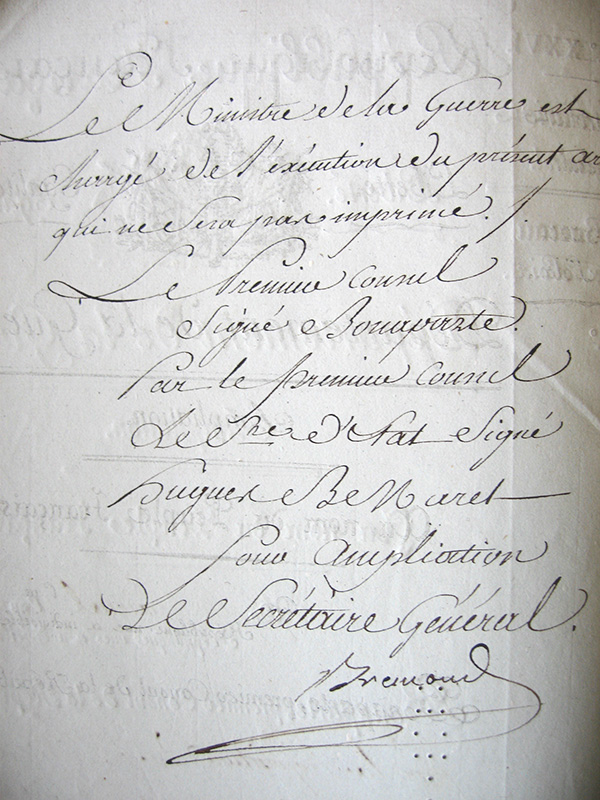 Le Ministre de la Guerre est
chargé de l'éxécution du présent ar
qui ne sera pas imprimé.
Le Premier Consul
Signé Bonaparte.
Par le premier Consul
Le Sre. d'Etat Signé
hugues B. Maret
Pour Ampliation
Le Secrétaire Général.